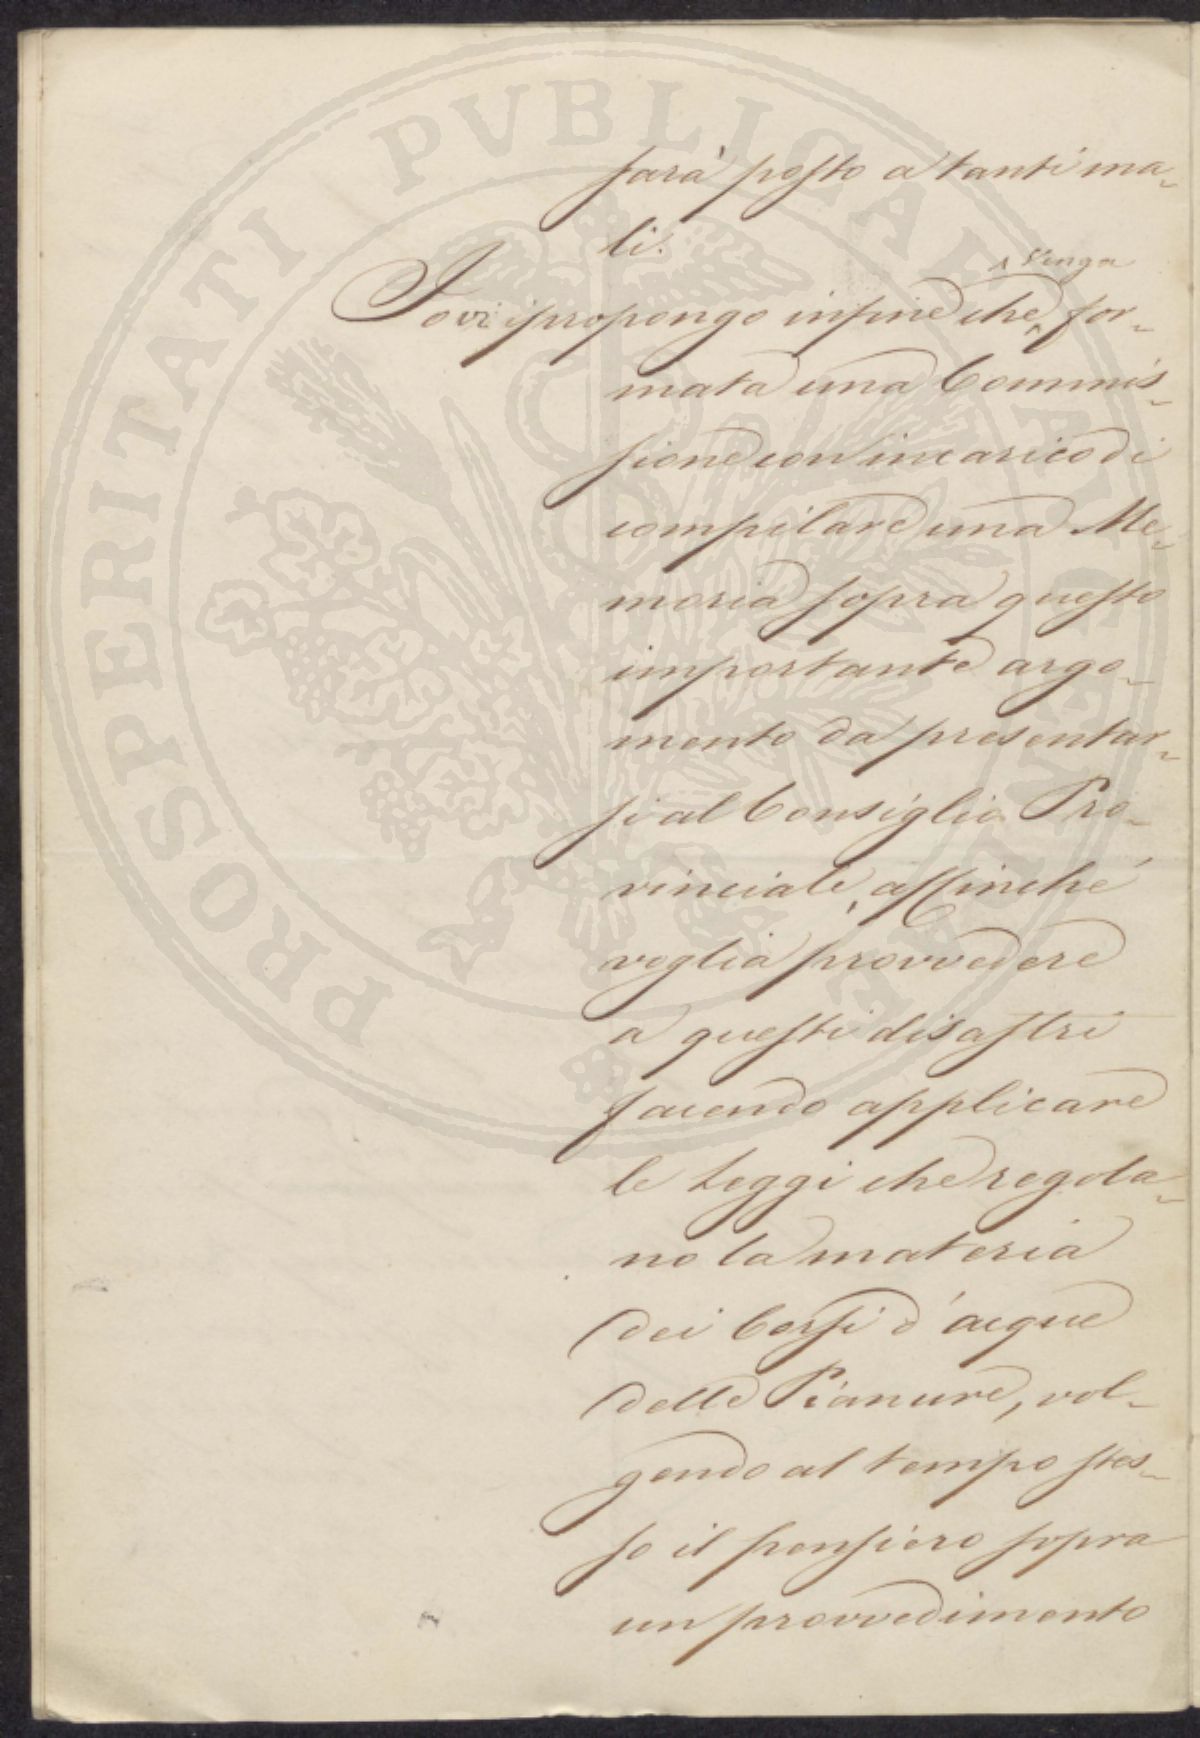 PROSPERITATI PVBLICAE AVGENDAE
sarà posto a tanti ma-
li.
venga
Io vi propongo infine che for-
mata una Commis-
sione con incarico di
compilare una Me-
moria sopra questo
importante argo-
mento da presentar-
si al Consiglio Pro-
vinciale, affinché
voglia provvedere
a questi disastri
facendo applicare
le Leggi che regola-
no la materia
dei Corsi d'acque
delle Pianure, vol-
gendo al tempo stes-
so il pensiero sopra
un provvedimento